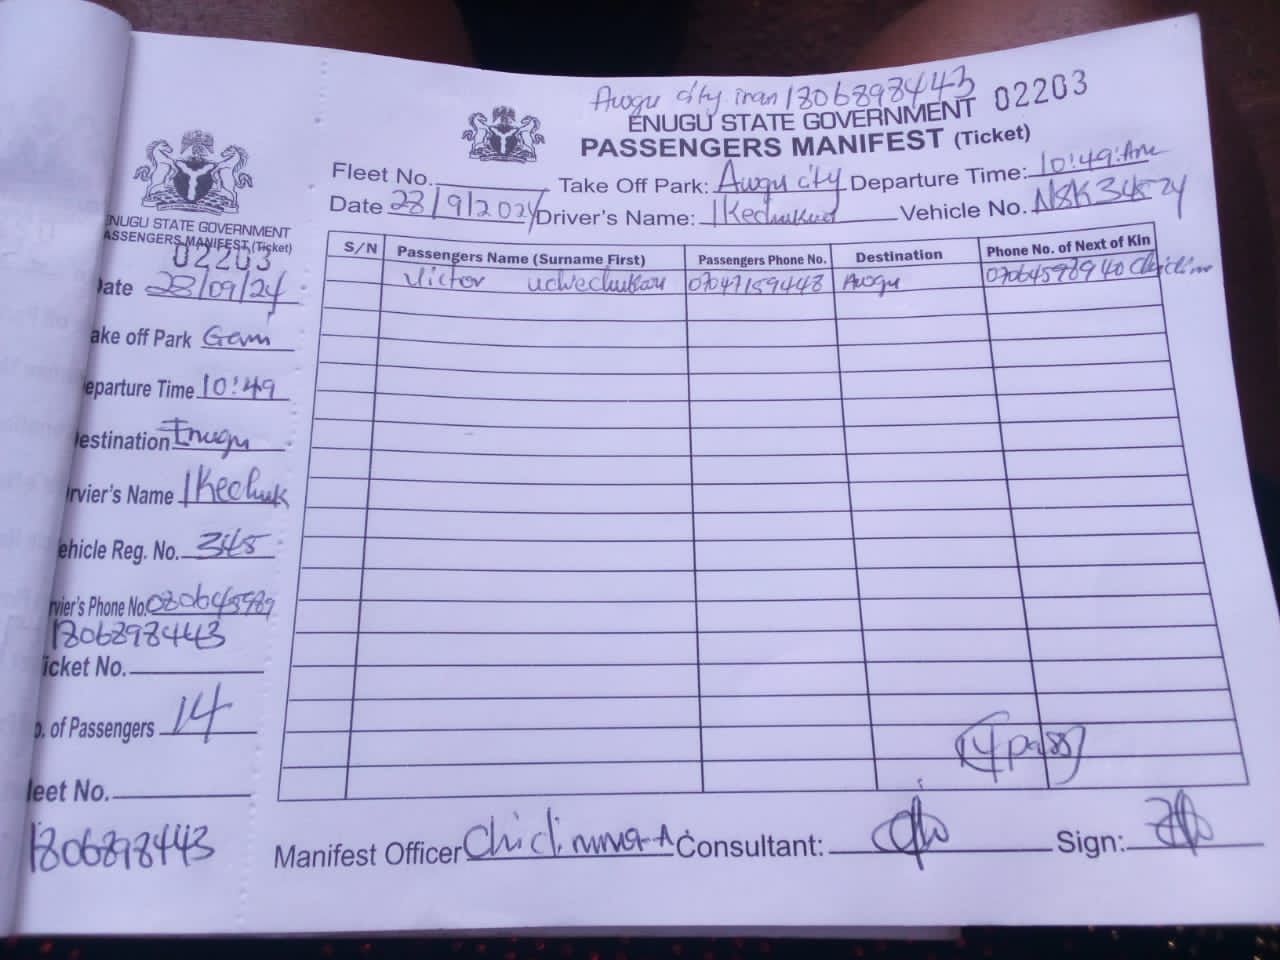 Awgu city iran 1806898443
ENUGU STATE GOVERNMENT 02203
PASSENGERS MANIFEST (Ticket)
Fleet No. Take Off Park: Awgu city Departure Time: 10:49:Am
Date 28/9/2024 Driver's Name: Ikechukwu Vehicle No. NSK345
S/N Passengers Name (Surname First) Passengers Phone No. Destination Phone No. of Next of Kin
Victor 07047159448 Awgu 07064598940
14 pass
Manifest Officer Chidinma A Consultant: Sign:
NUGU STATE GOVERNMENT
ASSENGERS MANIFEST (Ticket)
02203
ate 28/09/24
ake off Park
eparture Time 10:49
estination Enugu
rvier's Name Ikechuk
ehicle Reg. No. 345
rvier's Phone No. 080645989
1806898443
icket No.
o. of Passengers 14
leet No.
1806898443